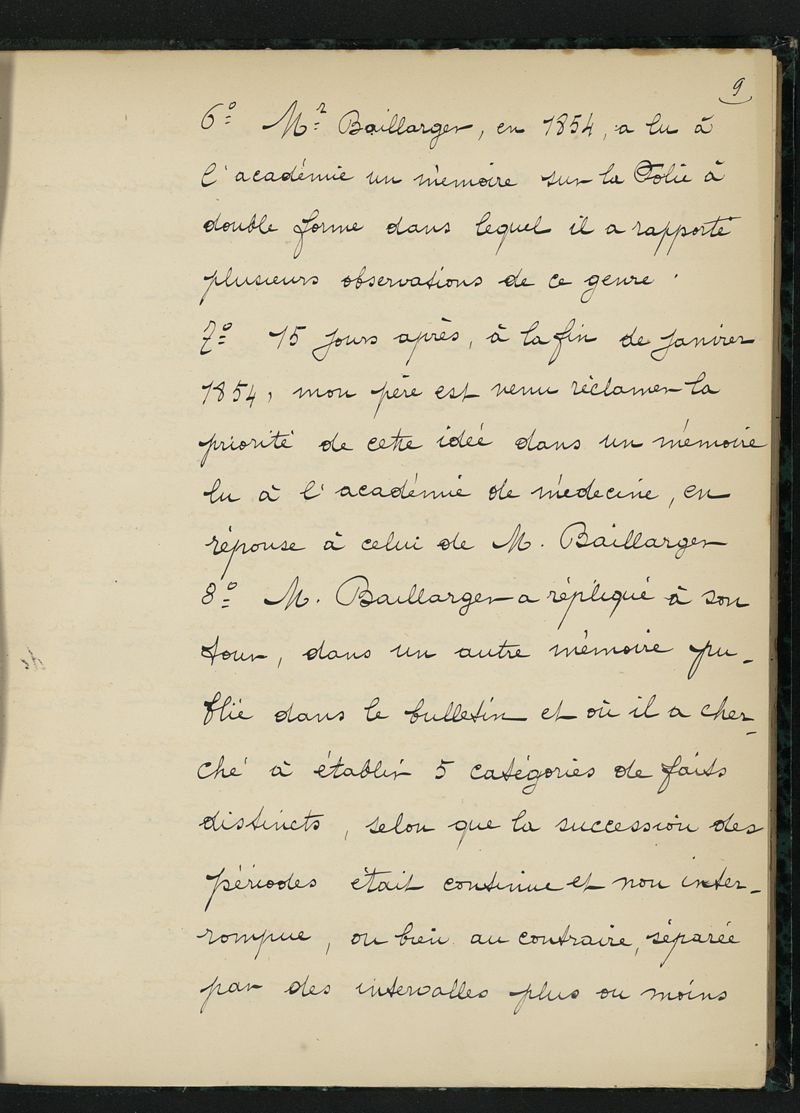 9
6º Mr Baillarger, en 1854, a lu à
l'académie un mémoire sur la Folie à
double forme dans lequel il a rapporté
plusieurs observations de ce genre.
7º 15 jours après, à la fin de janvier
1854, mon père est venu réclamer la
priorité de cette idée dans un mémoire
lu à l'académie de médecine, en
réponse à celui de M. Baillarger
8º M. Baillarger a répliqué à son
tour, dans un autre mémoire pu-
blié dans le bulletin et où il a cher-
ché à établir 5 catégories de faits
distincts, selon que la succession des
périodes était continue et non inter-
rompue, ou bien au contraire, séparée
par des intervalles plus ou moins